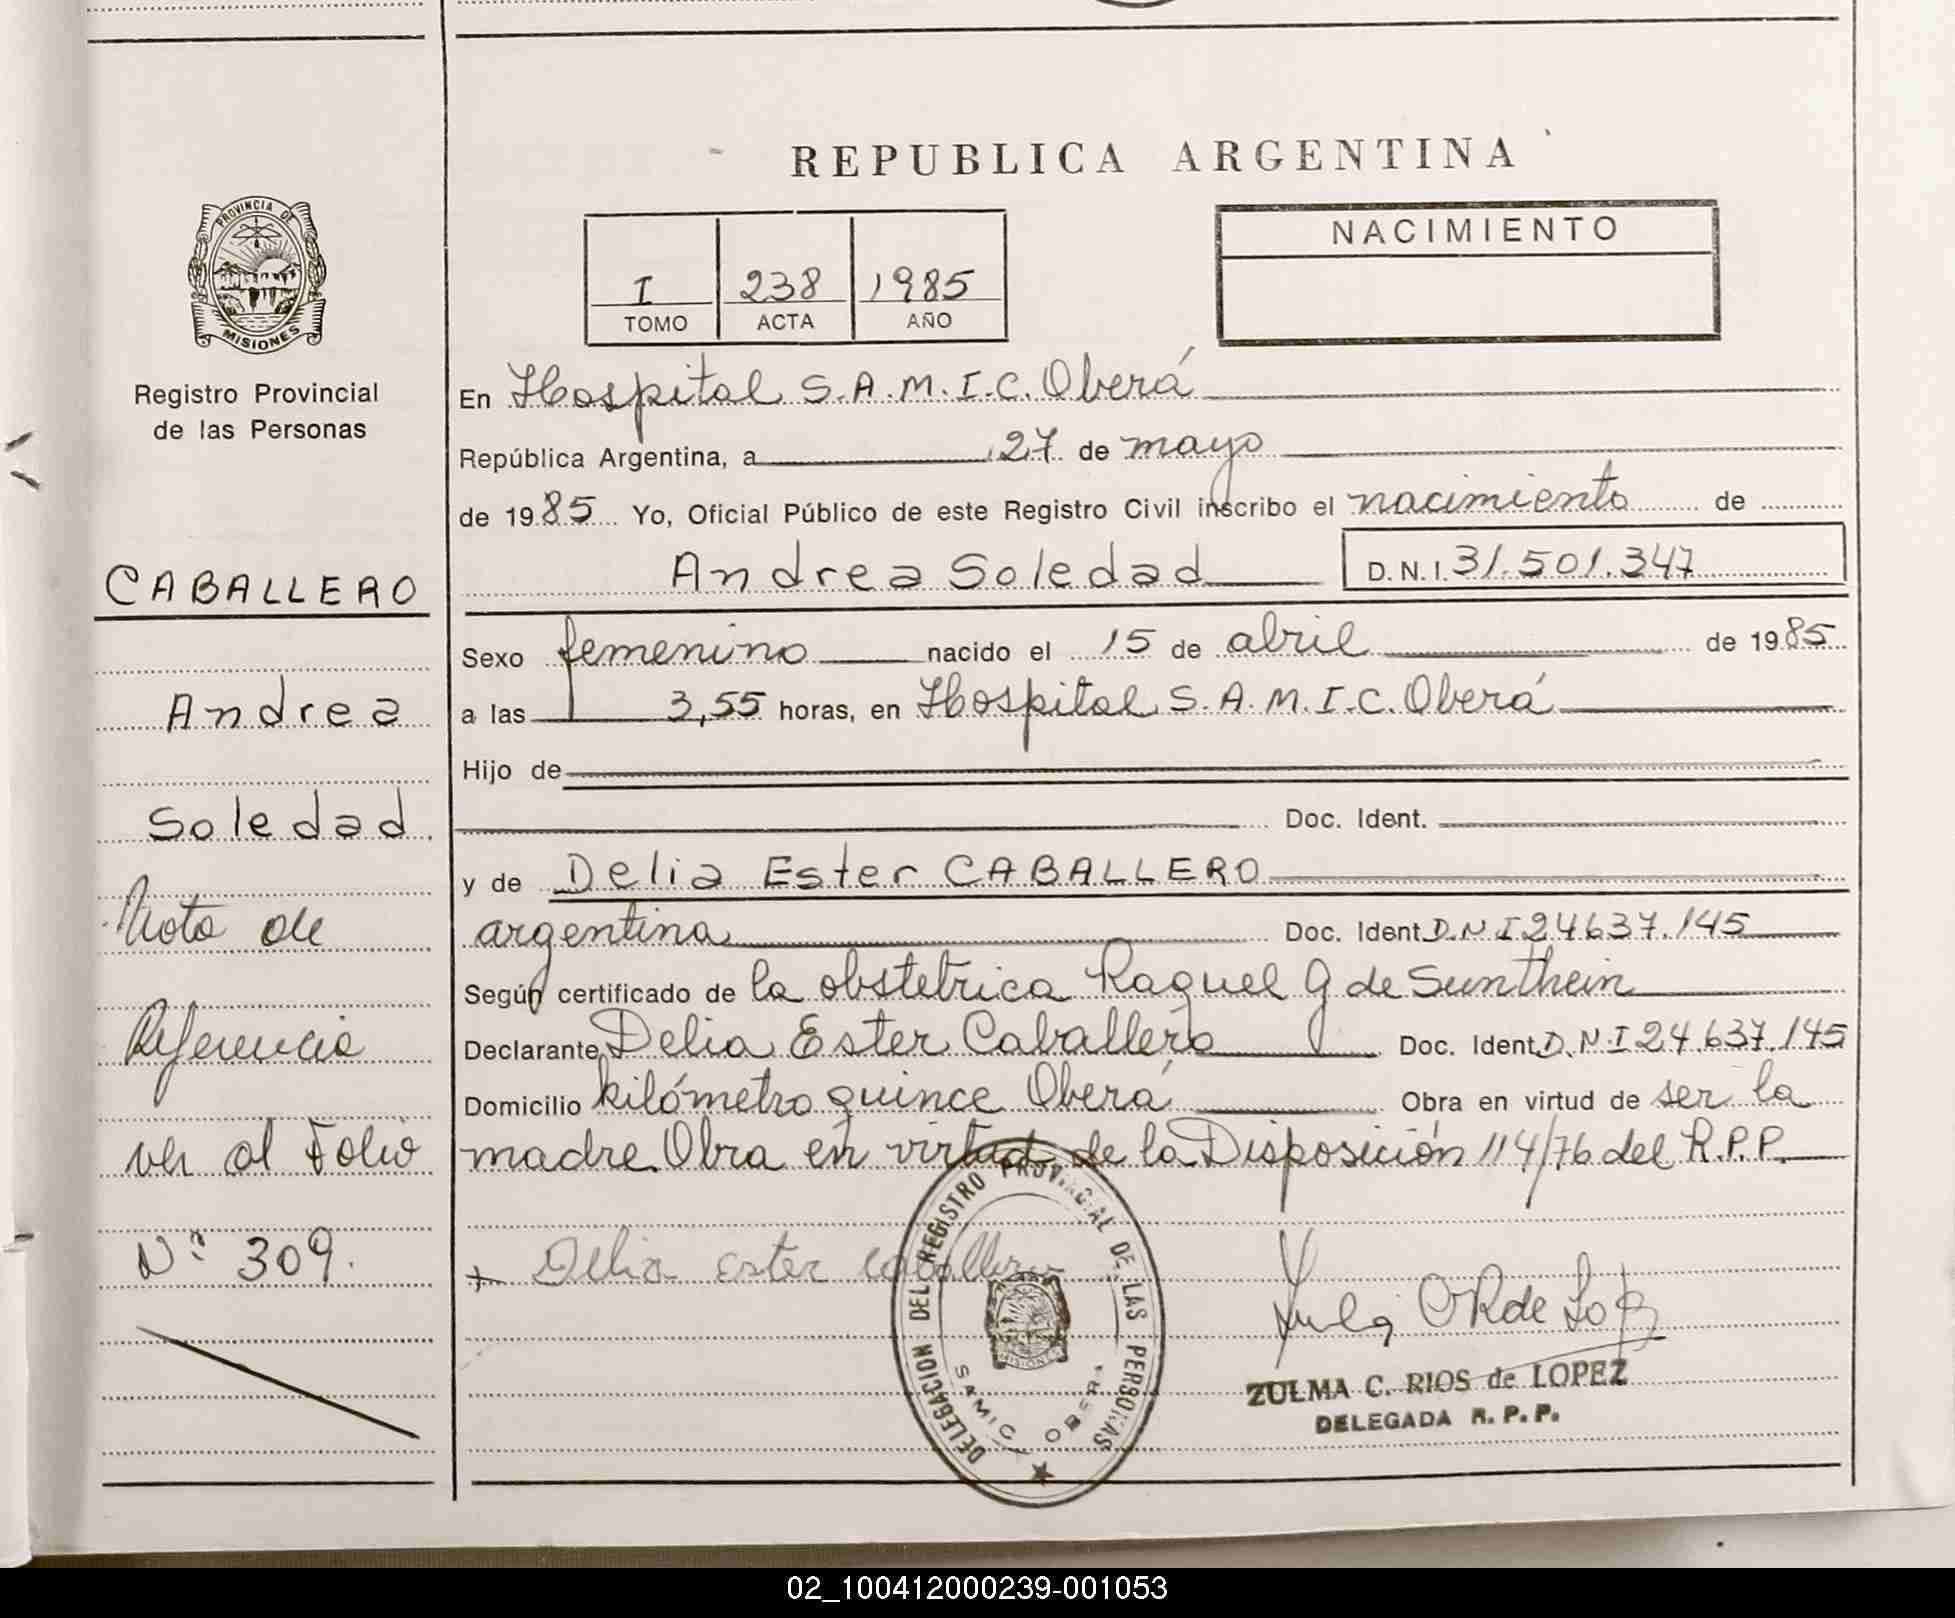 REPUBLICA ARGENTINA
PROVINCIA DE
MISIONES
Registro Provincial
de las Personas
CABALLERO
Andrea
Soledad
Nota de
Referencia
ver al Folio
Nº 309.
I 238 1985
TOMO ACTA AÑO
NACIMIENTO
En Hospital S.A.M.I.C. Oberá
República Argentina, a 27 de mayo
de 1985 Yo, Oficial Público de este Registro Civil inscribo el nacimiento de
Andrea Soledad D.N.I. 31.501.347
Sexo femenino nacido el 15 de abril de 1985
a las 3,55 horas, en Hospital S.A.M.I.C. Oberá
Hijo de
Doc. Ident.
y de Delia Ester CABALLERO
argentina Doc. Ident. D.N.I 24.637.145
Según certificado de la obstetrica Raquel G de Sunthein
Declarante Delia Ester Caballero Doc. Ident. D.N.I 24.637.145
Domicilio kilómetro quince Oberá Obra en virtud de ser la
madre. Obra en virtud de la Disposición 114/76 del R.P.P.
Delia ester caballero
DELEGACION DEL REGISTRO PROVINCIAL DE LAS PERSONAS
MISIONES
SAMIC OBERA
ZULMA C. RIOS de LOPEZ
DELEGADA R.P.P.
02_100412000239-001053